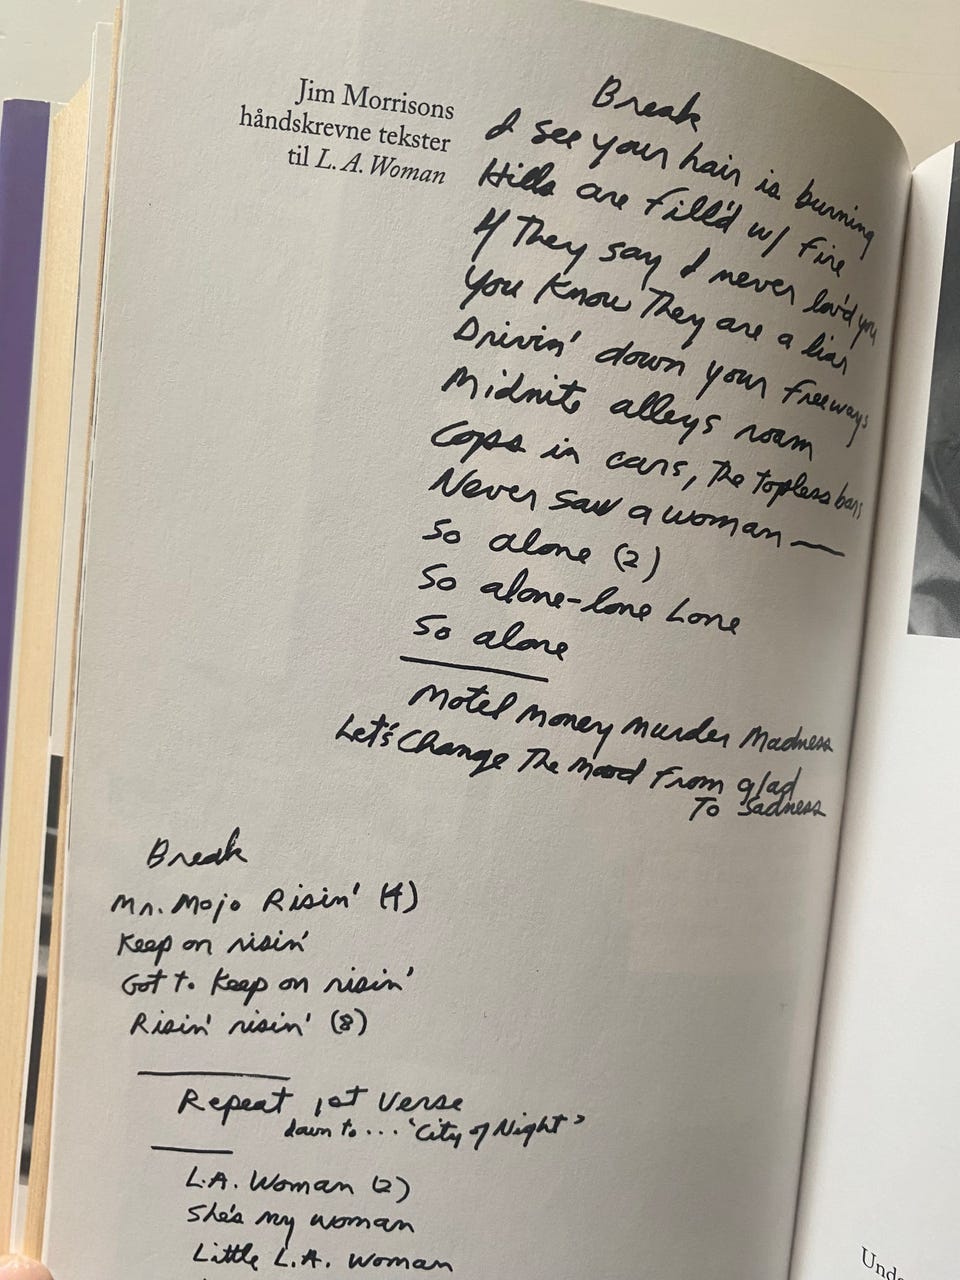 Jim Morrisons
håndskrevne tekster
til L. A. Woman
Break
I see your hair is burning
Hills are fill'd w/ fire
If They say I never lov'd you
You know They are a liar
Drivin' down your freeways
Midnite alleys roam
Cops in cars, The topless bars
Never saw a woman —
So alone (2)
So alone-lone Lone
So alone
Motel money murder Madness
Let's Change The mood From glad
To Sadness
Break
Mr. Mojo Risin' (4)
Keep on risin'
Got to Keep on risin'
Risin' risin' (8)
Repeat 1st Verse
down to... 'City of Night'
L.A. Woman (2)
She's my woman
Little L.A. Woman